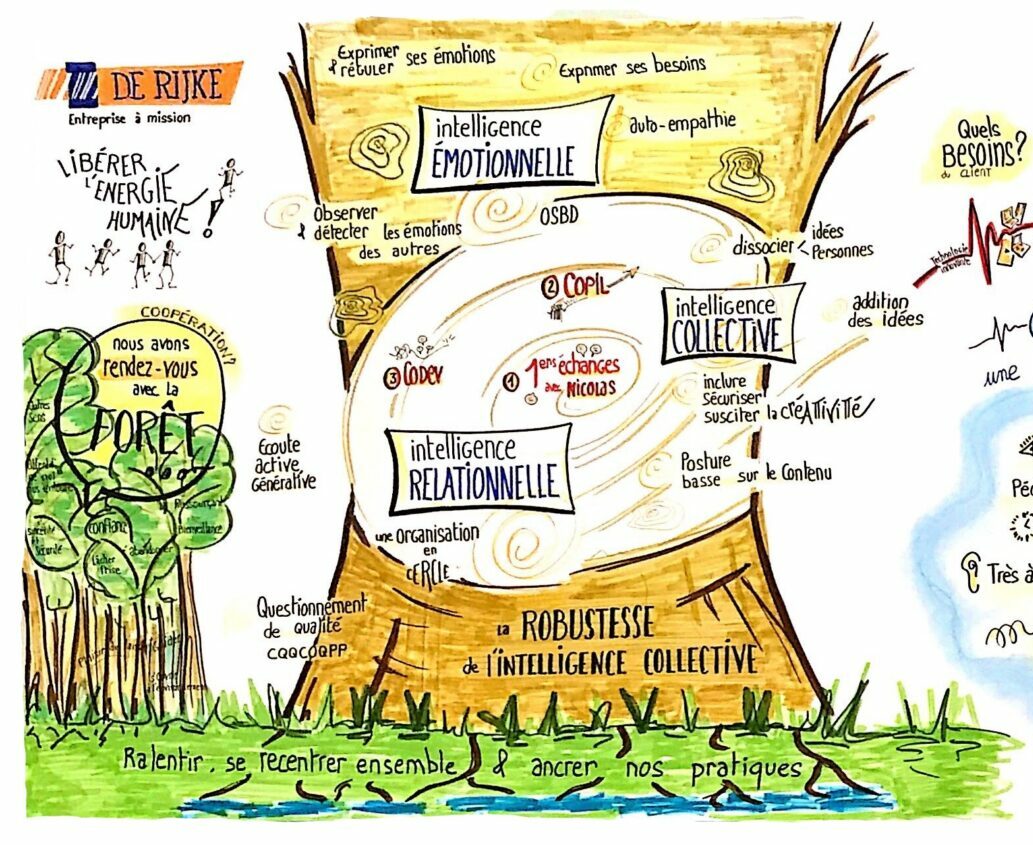 DE RIJKE
Entreprise à mission
LIBÉRER
L'ENERGIE
HUMAINE!
COOPÉRATION?
nous avons
rendez-vous
avec la
FORÊT
confiance
Lâcher
Prise
s'abandonner
Sécurité
Ressourçant
Bienveillance
Exprimer
& réguler ses émotions
Exprimer ses besoins
intelligence
ÉMOTIONNELLE
auto-empathie
Observer
& détecter les émotions
des autres
OSBD
dissocier idées
Personnes
② COPIL
intelligence
COLLECTIVE
addition
des idées
③ CODEV
① 1ers échanges
avec NICOLAS
inclure
Sécuriser
susciter la CRÉATIVITÉ
Ecoute
active
Générative
intelligence
RELATIONNELLE
Posture
basse sur le contenu
une organisation
en
CERCLE
Questionnement
de qualité
CQQCOQPP
la ROBUSTESSE
de l'INTELLIGENCE COLLECTIVE
Ralentir, se recentrer ensemble & ancrer nos pratiques
Quels
BESOINS?
du CLIENT
Technologie
une
Très à